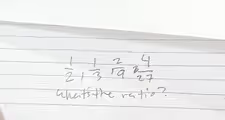 1/2, 1/3, 2/9, 4/27
what's the ratio?